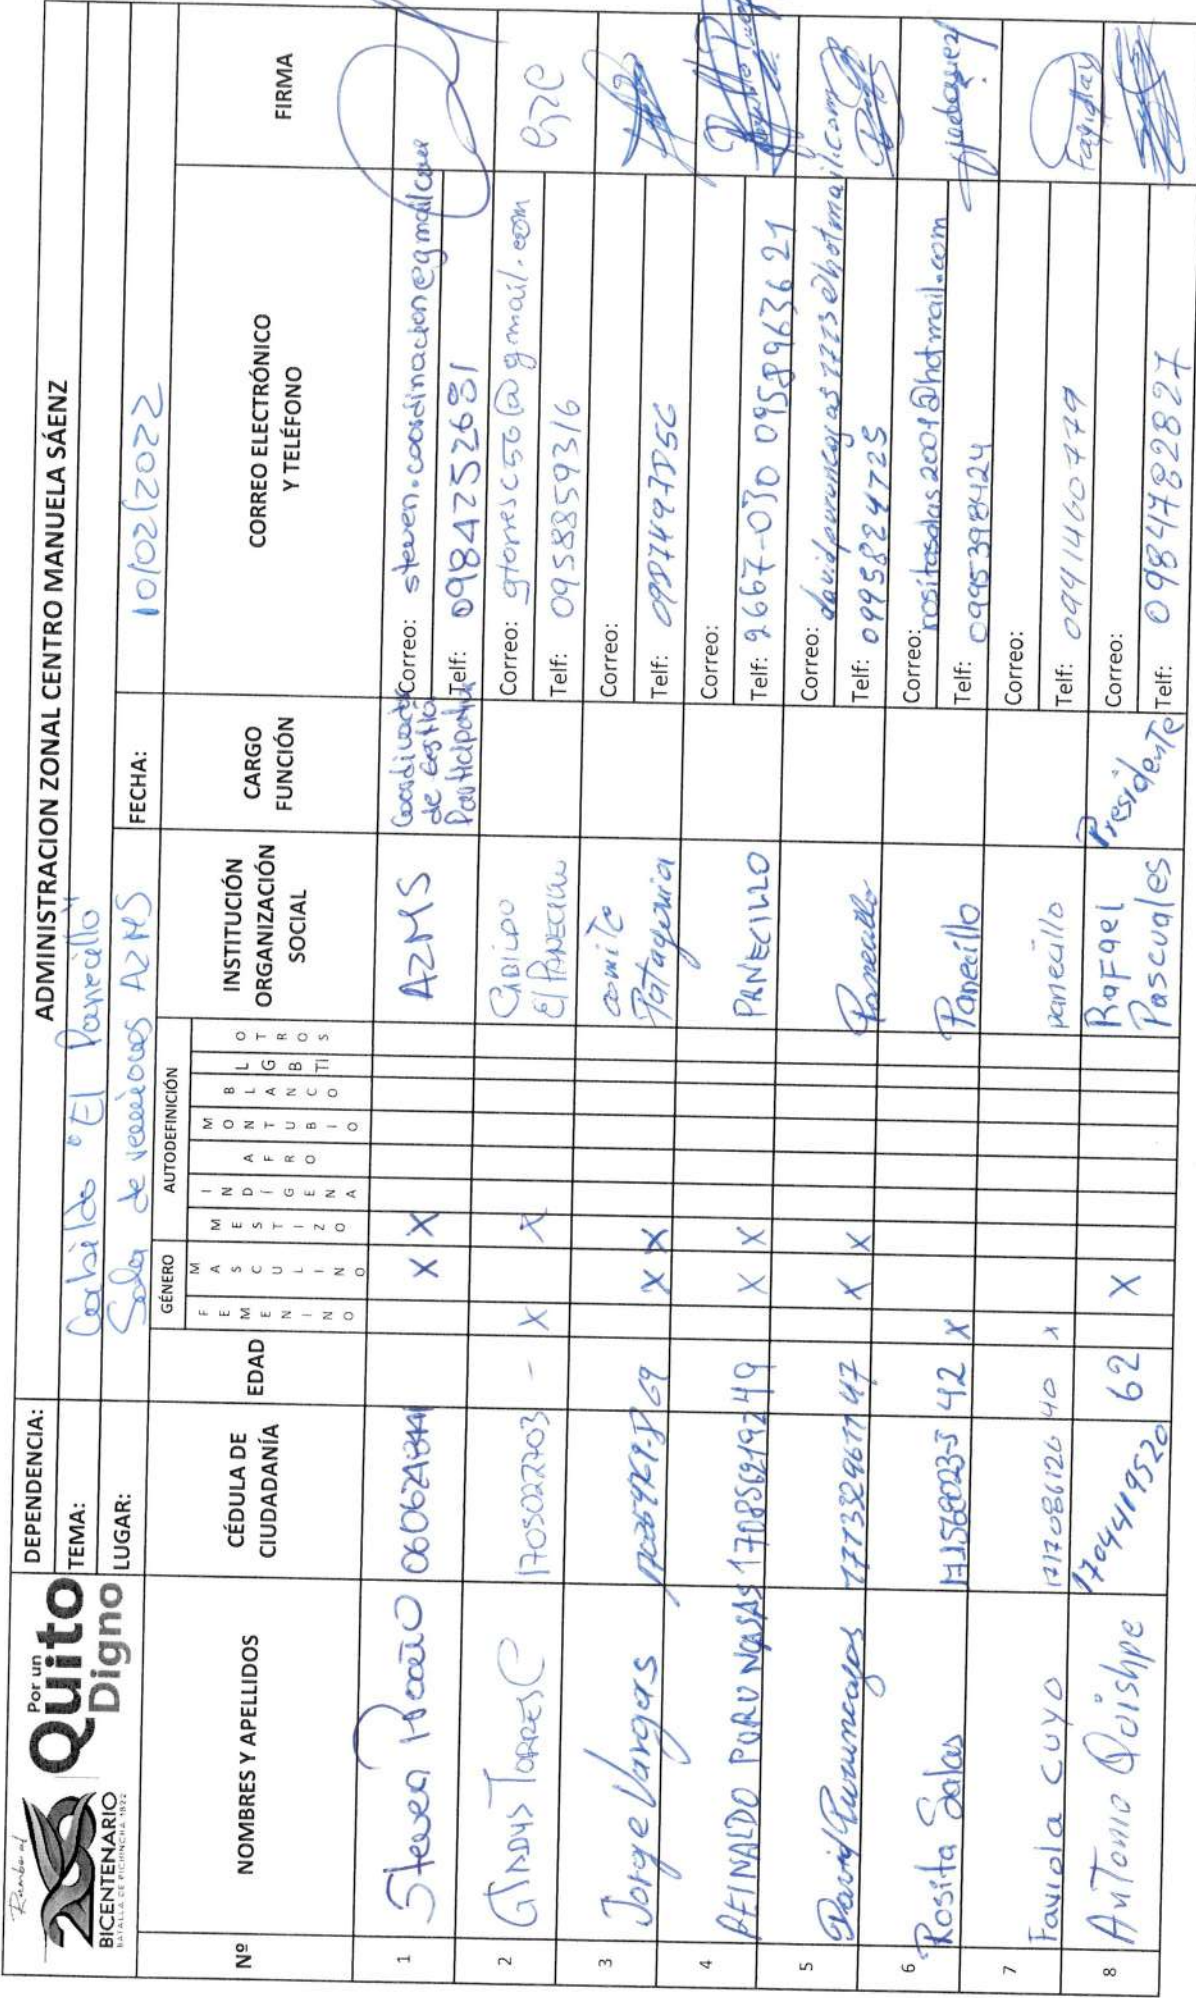 Rumbo al
BICENTENARIO
BATALLA DE PICHINCHA 1822
Por un
Quito
Digno
DEPENDENCIA: ADMINISTRACION ZONAL CENTRO MANUELA SÁENZ
TEMA: Cabildo "El Panecillo"
LUGAR: Sala de reuniones AZMS FECHA: 10/02/2022
Nº NOMBRES Y APELLIDOS CÉDULA DE CIUDADANÍA EDAD GÉNERO AUTODEFINICIÓN INSTITUCIÓN ORGANIZACIÓN SOCIAL CARGO FUNCIÓN CORREO ELECTRÓNICO Y TELÉFONO FIRMA
FEMENINO MASCULINO MESTIZO INDÍGENA AFRO MONTUBIO BLANCO LGBTI OTROS
1 Steven Proaño X X AZMS Coordinador de Gestión Participativa Correo: steven.coordinacion@gmail.com
Telf: 0984252681
2 GLADYS TORRES C 1705022703 - X X CABILDO El PANECILLO Correo: gtorresc56@gmail.com
Telf: 0958859316
3 Jorge Vargas 69 X X comite Patagonia Correo:
Telf:
4 REINALDO PURUNCAJAS 1708561927 49 X X PANECILLO Correo:
Telf: 2667-030 0958963621
5 David Puruncajas 1713329677 47 X X Panecillo Correo: davidpuruncajas7773@hotmail.com
Telf: 0995824725
6 Rosita Salas 42 X Panecillo Correo: rositasalas2001@hotmail.com
Telf: 0995398424
7 Faviola Cuyo 1717086126 40 x panecillo Correo:
Telf: 0991460779
8 Antonio Quishpe 1704419520 62 X Rafael Pascuales Presidente Correo:
Telf: 0984782827